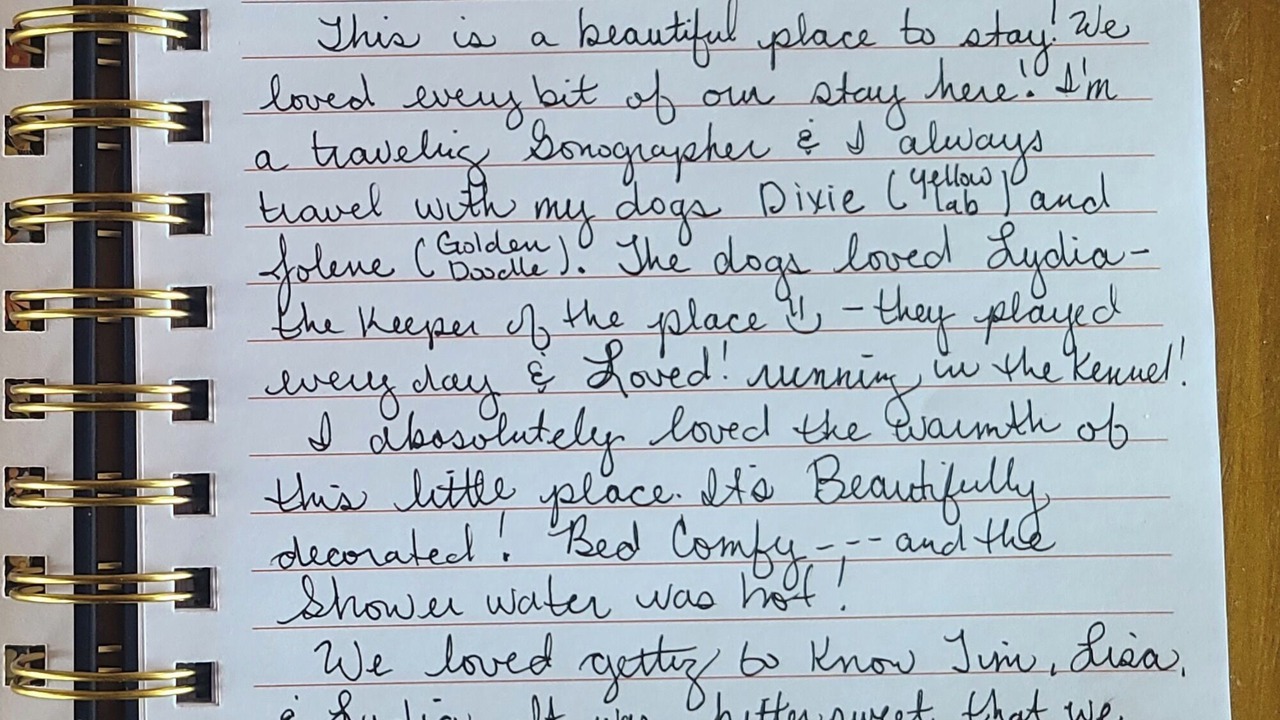 This is a beautiful place to stay! We
loved every bit of our stay here! I'm
a traveling Sonographer & I always
travel with my dogs Dixie (yellow lab) and
Jolene (Golden Doodle). The dogs loved Lydia -
the Keeper of the place - they played
every day & Loved! running in the Kennel!
I absolutely loved the warmth of
this little place. It's Beautifully
decorated! Bed Comfy ---- and the
Shower water was hot!
We loved getting to know Jim, Lisa,
& Lydia. It was bittersweet that we